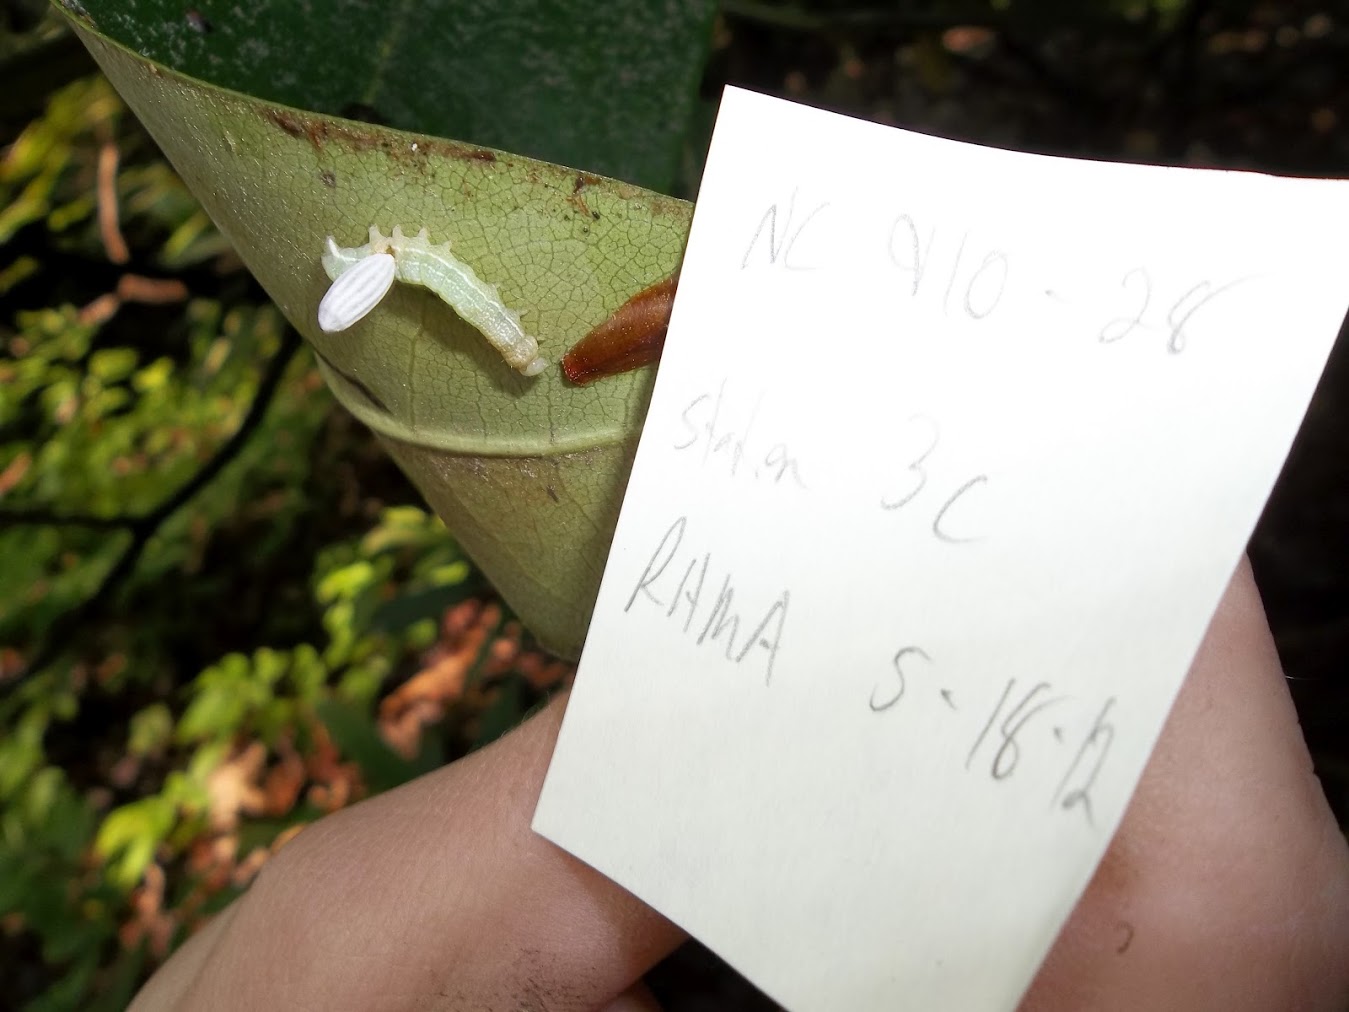 NC 910-28
Station 3C
RAMA 5-18-12